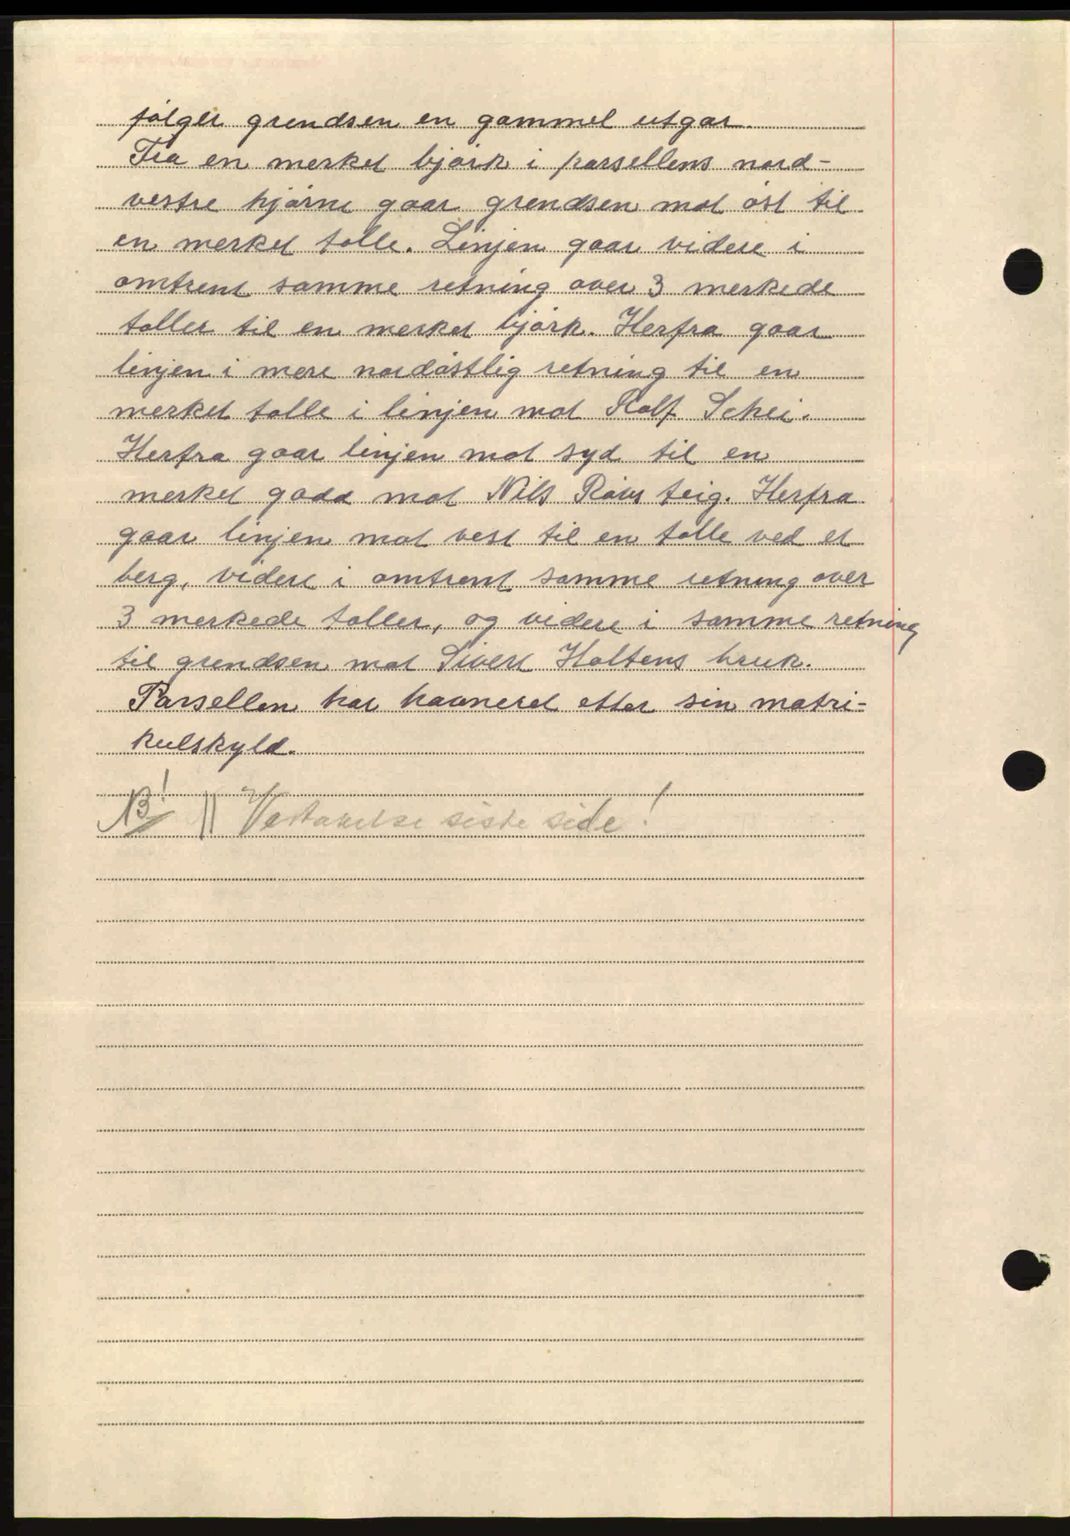 følger grendsen en gammel utgar.
Fra en merket bjørk i parsellens nord-
vestre hjørne gaar grendsen mot øst til
en merket tolle. Linjen gaar videre i
omtrent samme retning over 3 merkede
toller til en merket bjørk. Herfra gaar
linjen i mere nordøstlig retning til en
merket tolle i linjen mot Rolf Schei.
Herfra gaar linjen mot syd til en
merket gadd mot Nils Røvs teig. Herfra
gaar linjen mot vest til en tolle ved et
berg, videre i omtrent samme retning over
3 merkede toller, og videre i samme retning
til grendsen mot Sivert Holtens bruk.
Parsellen har havneret etter sin matri-
kulskyld.
NB! || Vedtakelse siste side!